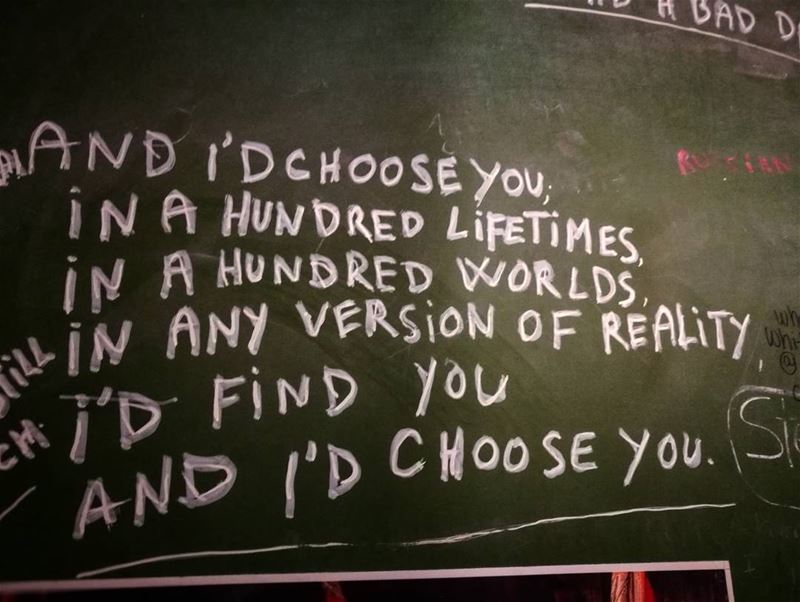 A BAD
AND I'D CHOOSE YOU;
IN A HUNDRED LIFETIMES,
IN A HUNDRED WORLDS,
IN ANY VERSION OF REALITY,
I'D FIND YOU
AND I'D CHOOSE YOU.